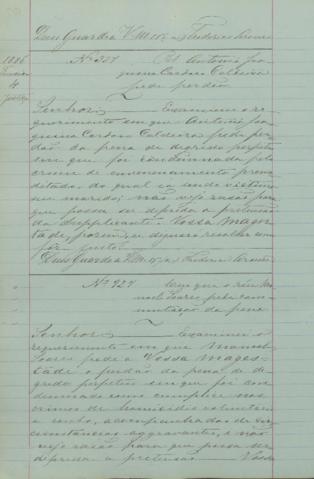 Deus Guarde a V. M.
1886
Nº 927
Antonia Joa
quina Cardoso Caldeira
pede perdão
Senhor Examinei o re
querimento em que Antonia Joa
quina Cardoso Caldeira pede per
dão da pena de degredo perpetuo
em que foi condemnada pelo
crime de envenenamento preme
ditado, do qual
seu marido; não vejo razão pa
ra que possa ser diferida a pretensão
da supplicante. Vossa Mages
tade, porém, se dignará resolver com
fôr justo.
Deus Guarde a V. M.
Nº 927 em que o réu Ma
noel Soares pede com
mutação da pena
Senhor Examinei o
requerimento em que Manoel
Soares pede a Vossa Mages
tade o perdão da pena de de
gredo perpetuo em que foi con
demnado como cumplice nos
crimes de homicidio voluntario
e roubo, acompanhados de cir
cumstancias aggravantes, e não
vejo razão para que possa ser
diferida a pretensão. Vossa